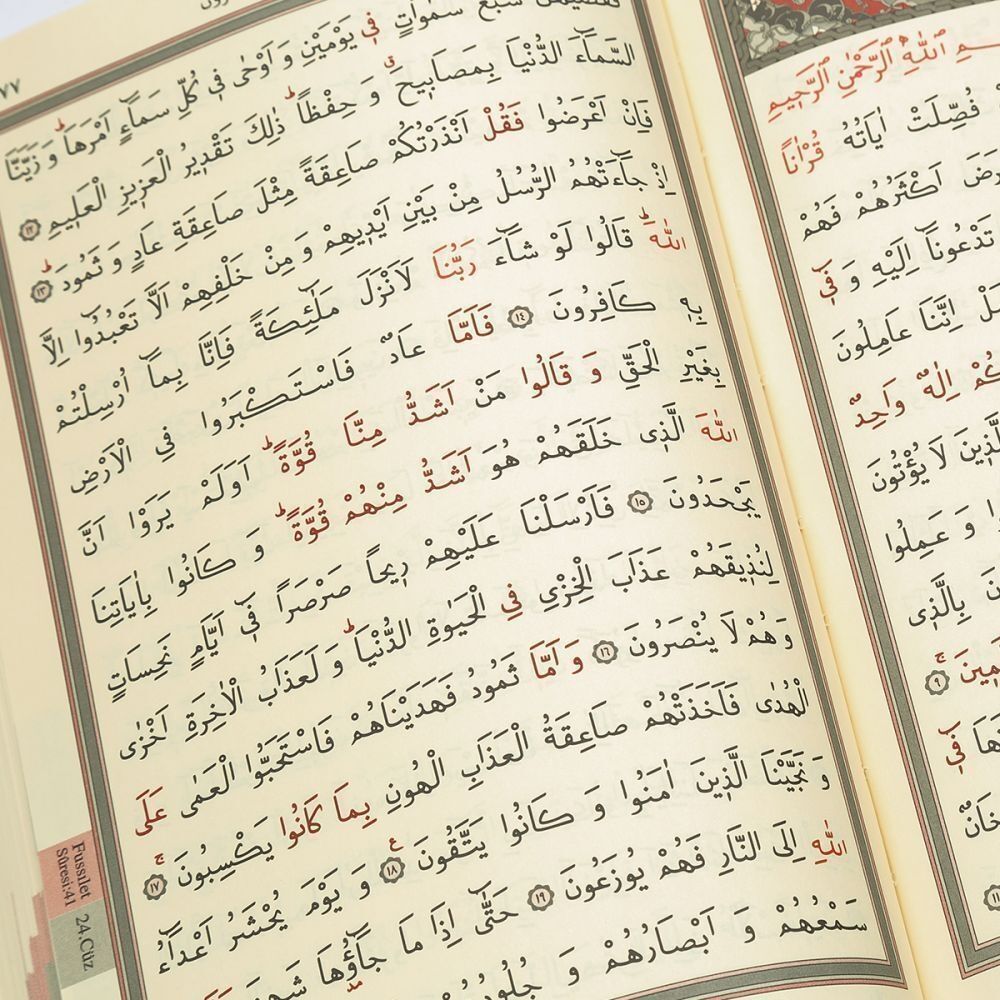 ٧٧
سَبْعَ سَمٰوَاتٍ فٖي يَوْمَيْنِ وَ اَوْحٰى فٖي كُلِّ سَمَٓاءٍ اَمْرَهَاؕ وَ زَيَّنَّا
السَّمَٓاءَ الدُّنْيَا بِمَصَابٖيحَۗ وَ حِفْظاًؕ ذٰلِكَ تَقْدٖيرُ الْعَزٖيزِ الْعَلٖيمِ ﴿١٢﴾
فَاِنْ اَعْرَضُوا فَقُلْ اَنْذَرْتُكُمْ صَاعِقَةً مِثْلَ صَاعِقَةِ عَادٍ وَ ثَمُودَؕ ﴿١٣﴾
اِذْ جَٓاءَتْهُمُ الرُّسُلُ مِنْ بَيْنِ اَيْدٖيهِمْ وَ مِنْ خَلْفِهِمْ اَلَّا تَعْبُدُٓوا اِلَّا
اللّٰهَؕ قَالُوا لَوْ شَٓاءَ رَبُّنَا لَاَنْزَلَ مَلٰٓئِكَةً فَاِنَّا بِمَٓا اُرْسِلْتُمْ
بِهٖ كَافِرُونَ ﴿١٤﴾ فَاَمَّا عَادٌ فَاسْتَكْبَرُوا فِي الْاَرْضِ
بِغَيْرِ الْحَقِّ وَ قَالُوا مَنْ اَشَدُّ مِنَّا قُوَّةًؕ اَوَلَمْ يَرَوْا اَنَّ
اللّٰهَ الَّذٖى خَلَقَهُمْ هُوَ اَشَدُّ مِنْهُمْ قُوَّةًؕ وَ كَانُوا بِاٰيَاتِنَا
يَجْحَدُونَ ﴿١٥﴾ فَاَرْسَلْنَا عَلَيْهِمْ رٖيحاً صَرْصَراً فٖٓي اَيَّامٍ نَحِسَاتٍ
لِنُذٖيقَهُمْ عَذَابَ الْخِزْىِ فِي الْحَيٰوةِ الدُّنْيَاؕ وَ لَعَذَابُ الْاٰخِرَةِ اَخْزٰى
وَ هُمْ لَا يُنْصَرُونَ ﴿١٦﴾ وَ اَمَّا ثَمُودُ فَهَدَيْنَاهُمْ فَاسْتَحَبُّوا الْعَمٰى عَلَى
الْهُدٰى فَاَخَذَتْهُمْ صَاعِقَةُ الْعَذَابِ الْهُونِ بِمَا كَانُوا يَكْسِبُونَۚ ﴿١٧﴾
وَ نَجَّيْنَا الَّذٖينَ اٰمَنُوا وَ كَانُوا يَتَّقُونَ ﴿١٨﴾ وَ يَوْمَ يُحْشَرُ اَعْدَٓاءُ
اللّٰهِ اِلَى النَّارِ فَهُمْ يُوزَعُونَ ﴿١٩﴾ حَتّٰٓى اِذَا مَا جَٓاؤُ۫هَا
سَمْعُهُمْ وَ اَبْصَارُهُمْ وَ
Fussılet
Sûresi:41
24.Cüz
اللّٰهِ الرَّحْمٰنِ الرَّحٖيمِ
فُصِّلَتْ اٰيَاتُهُ قُرْاٰناً
اَكْثَرُهُمْ فَهُمْ
تَدْعُونَٓا اِلَيْهِ وَ فٖٓي
اِنَّنَا عَامِلُونَ
اِلٰهٌ وَاحِدٌ
لَا يُؤْتُونَ
وَ عَمِلُوا
بِالَّذٖى
﴿٩﴾
فٖي